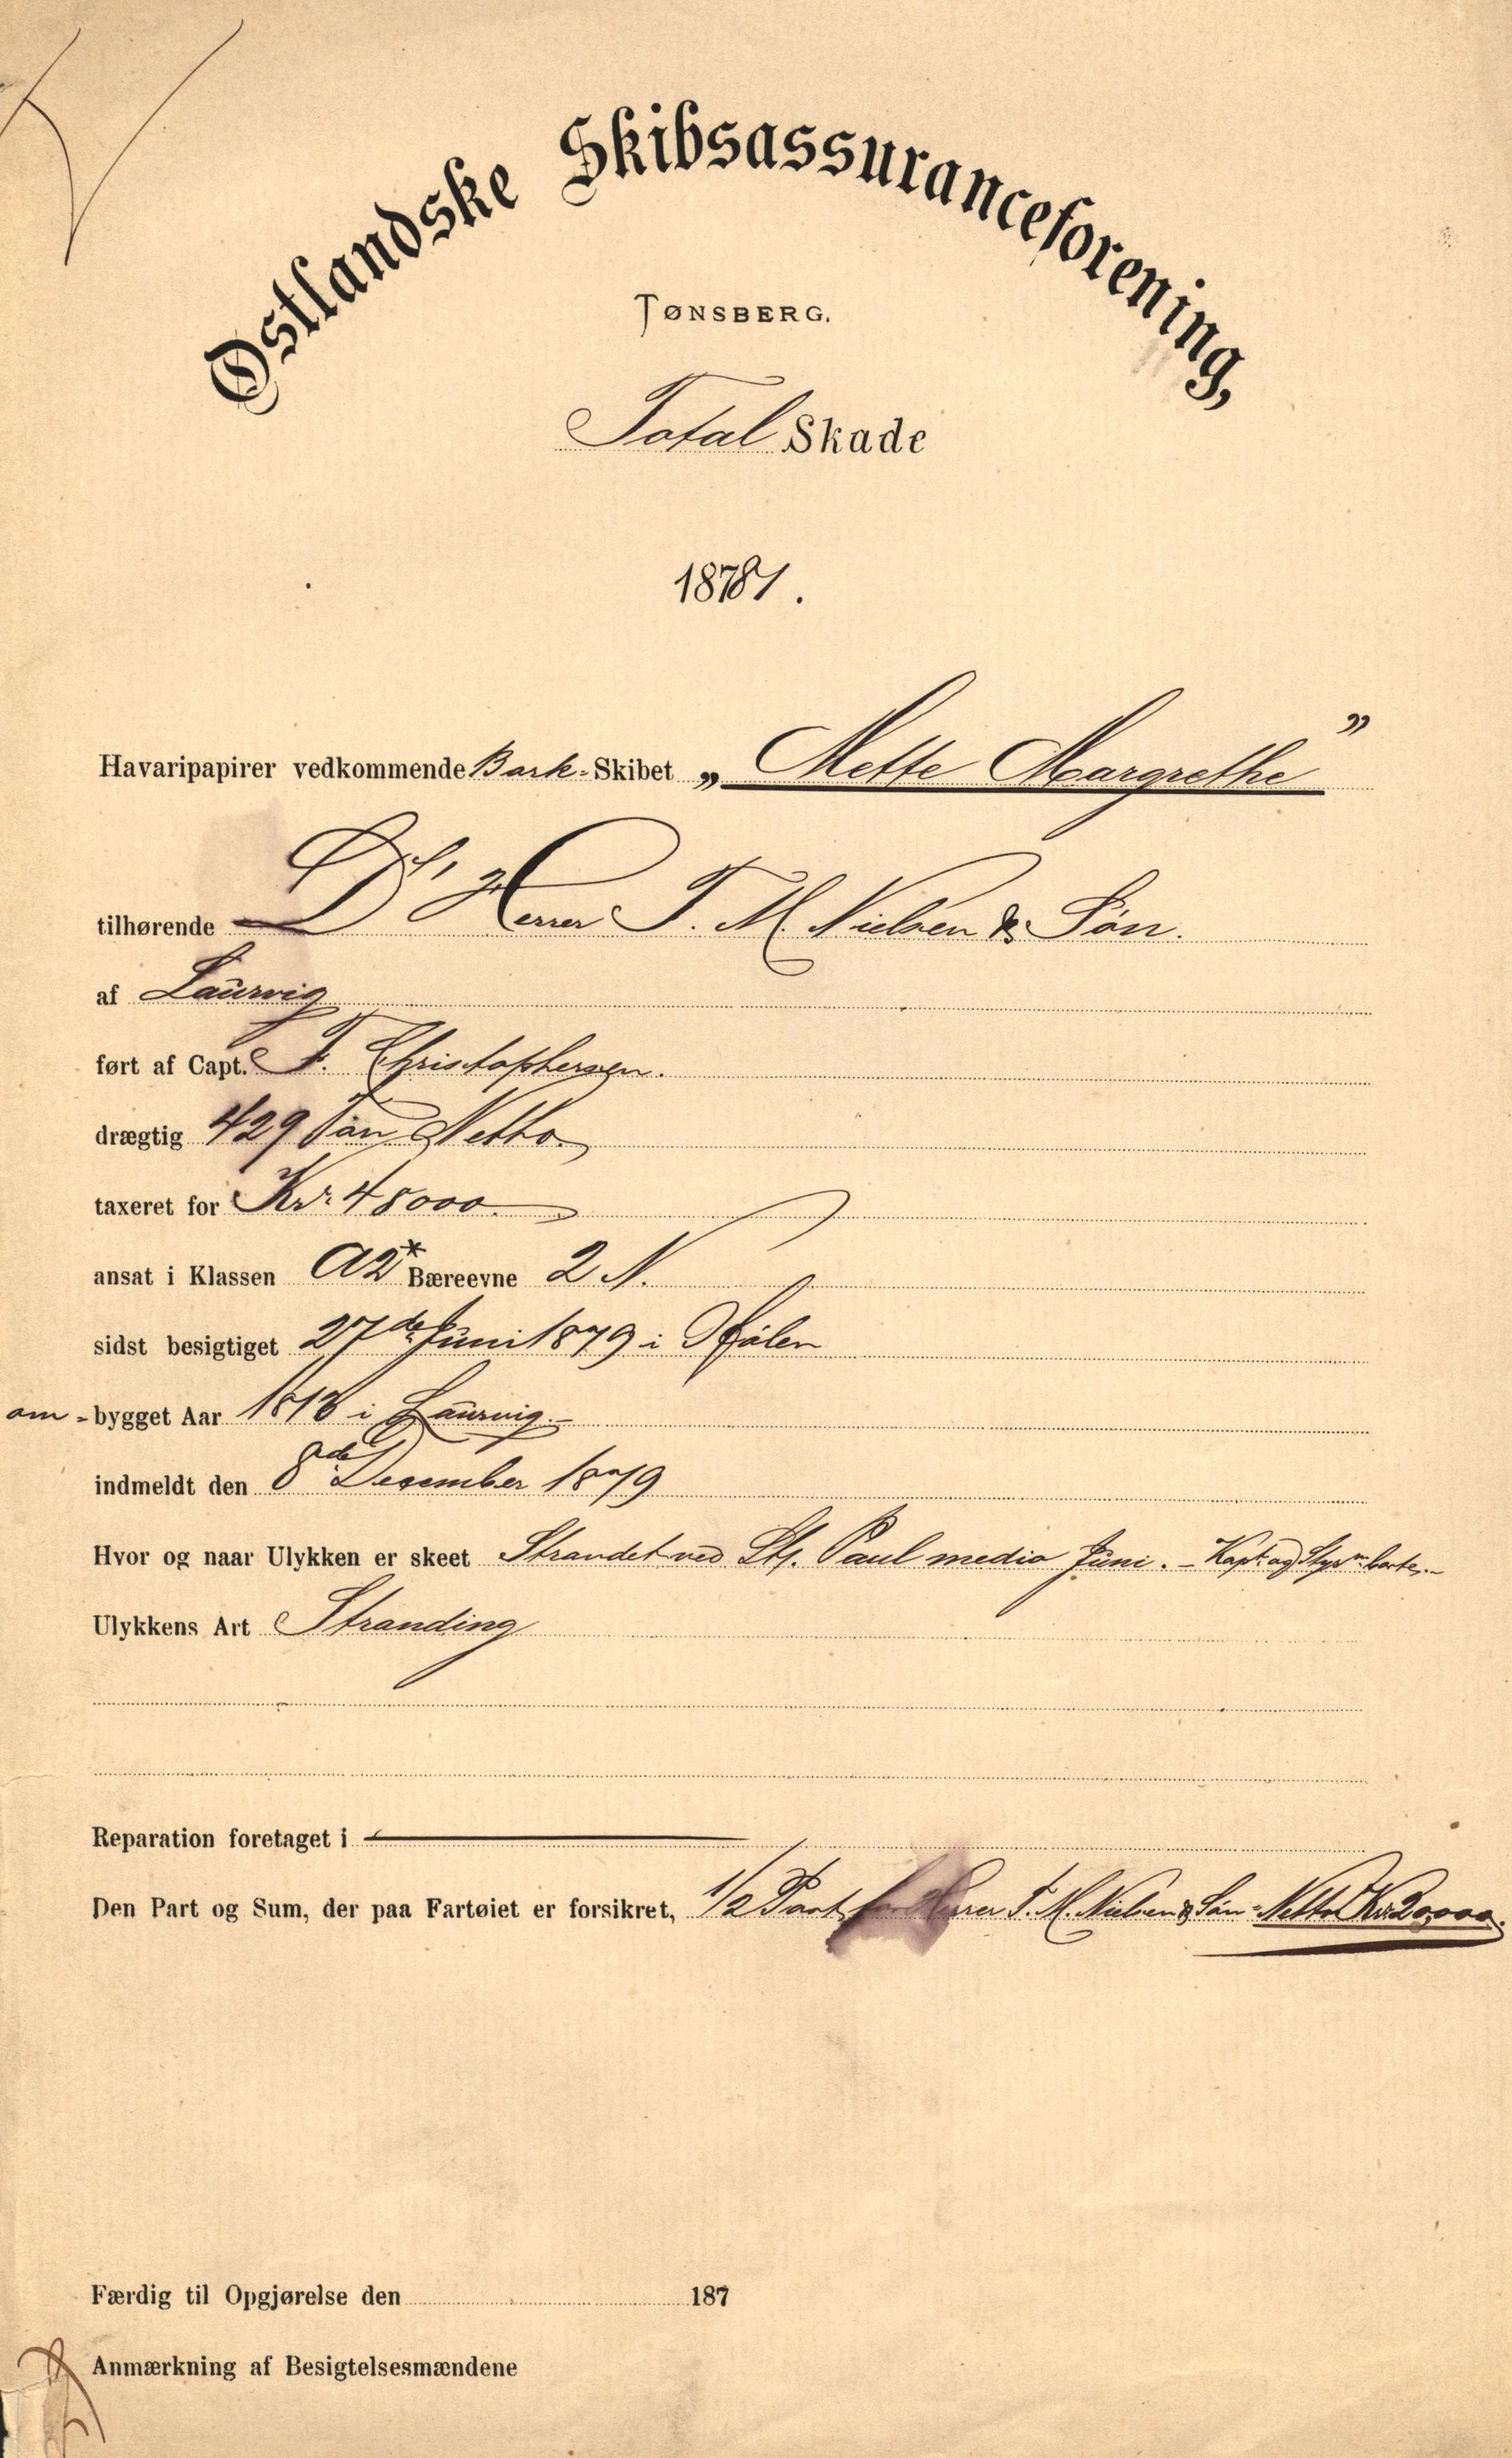 Østlandske Skibsassuranceforening,
TØNSBERG.
Total Skade
1881.
Havaripapirer vedkommende Bark-Skibet „Mette Margrethe”
tilhørende D'Hrr Herrer T. M. Nielsen & Søn.
af Laurvig
ført af Capt. F. Christophersen.
drægtig 429 Ton Netto.
taxeret for Kr. 48000.
ansat i Klassen A2* Bæreevne 2 N.
sidst besigtiget 27de Juni 1879 i
om-bygget Aar i Laurvig.-
indmeldt den 8de December 1879
Hvor og naar Ulykken er skeet Strandet ved St. Paul medio Juni. - Kapt. og Styrm. borte.-
Ulykkens Art Stranding
Reparation foretaget i
Den Part og Sum, der paa Fartøiet er forsikret, 1/2 Part for Herrer T. M. Nielsen & Søn - Netto Kr. 20,000.
Færdig til Opgjørelse den 187
Anmærkning af Besigtelsesmændene